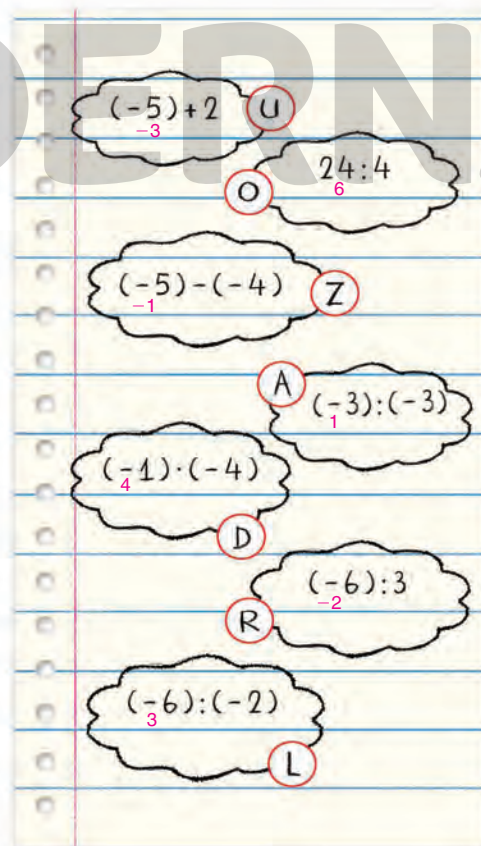 DERN
(-5)+2 U
-3
24:4
6
O
(-5)-(-4) Z
-1
A
(-3):(-3)
1
(-1)·(-4)
4
D
(-6):3
-2
R
(-6):(-2)
3
L